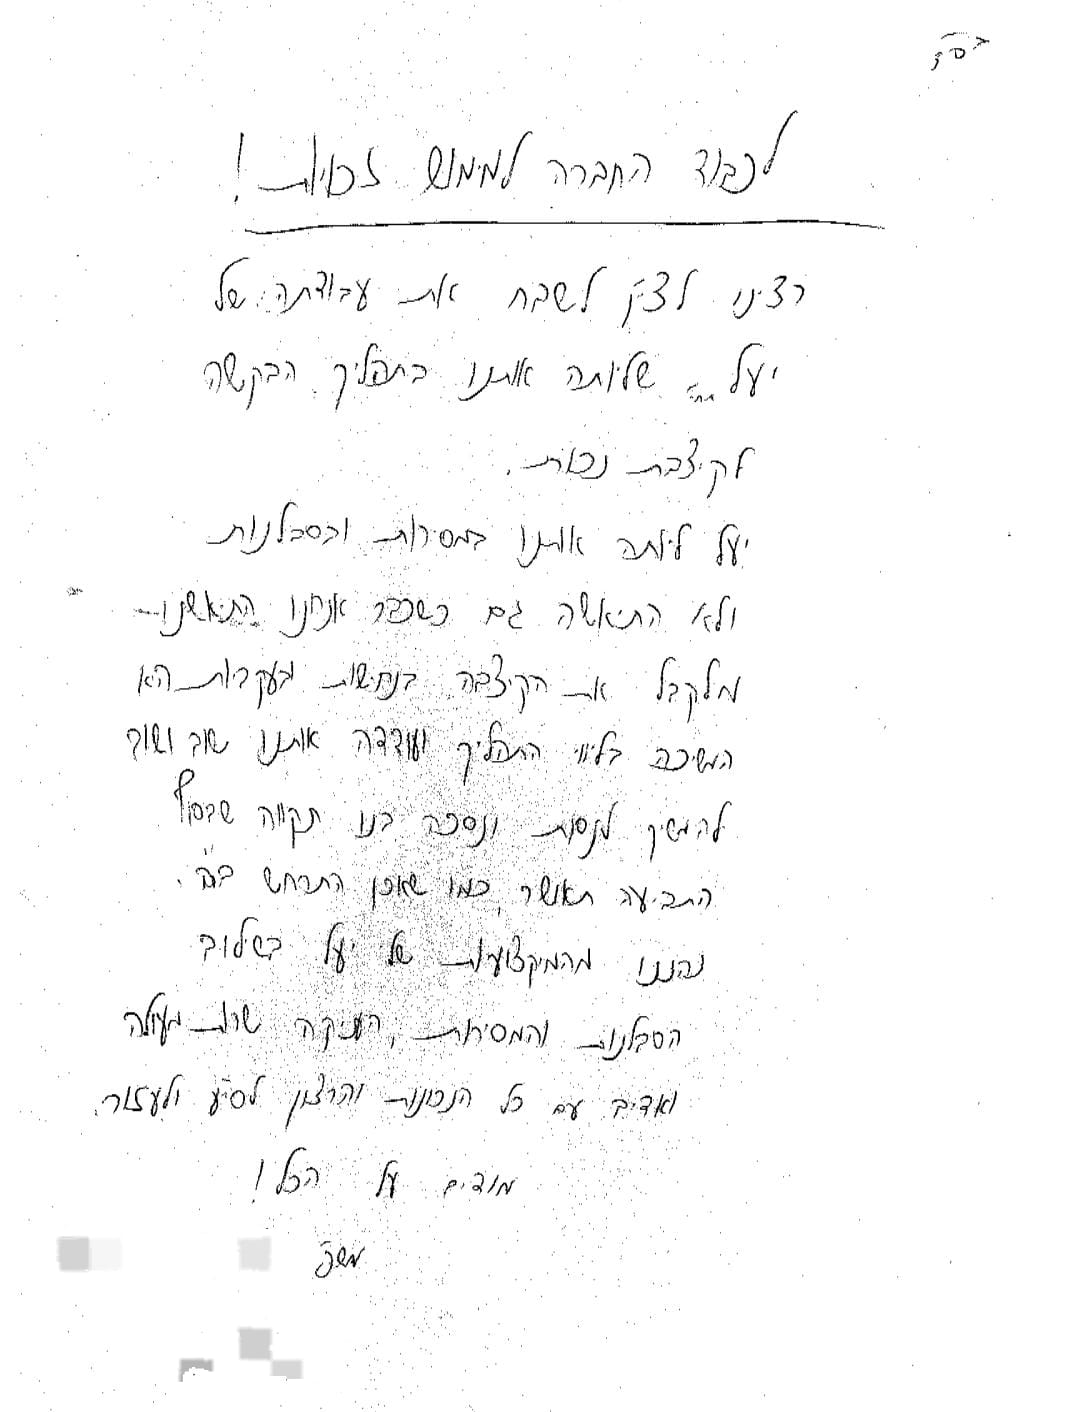 בס"ד
לכבוד החברה למימוש זכויות!
רצינו לציין לשבח את עבודתה של
יעל תחי' שליותה אותנו בתהליך הבקשה
לקיצבת נכות.
יעל ליותה אותנו במסירות ובסבלנות
ולא התיאשה גם כשכבר אנחנו התיאשנו
מלקבל את הקיצבה בנחישות ובעקביות היא
המשיכה בליווי התהליך ועודדה אותנו שוב ושוב
להמשיך לנסות ונסכה בנו תקווה שבסוף
התביעה תאושר, כמו שאכן התרחש ב"ה.
נהננו מהמיקצועיות של יעל בשילוב
הסבלנות והמסירות, העניקה שרות מעולה
ואדיב עם כל הנכונות והרצון לסייע ולעזור.
מודים על הכל!
משפ'